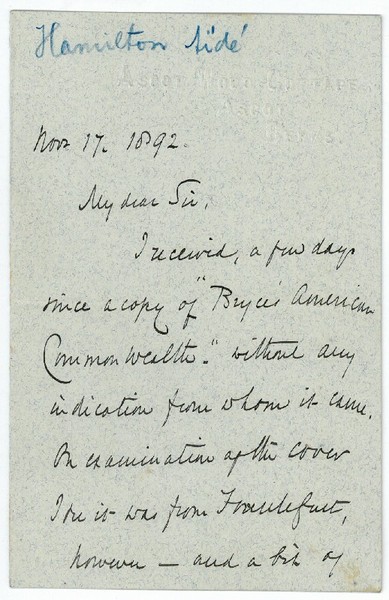 Hamilton Aïdé
ASCOT WOOD COTTAGE
ASCOT
Nov 17. 1892.
My dear Sir,
I received, a few days
since a copy of "Bryce's American
Commonwealth." without any
indication from whom it came.
On examination of the cover
I see it was from Frankfurt,
however — and a bit of